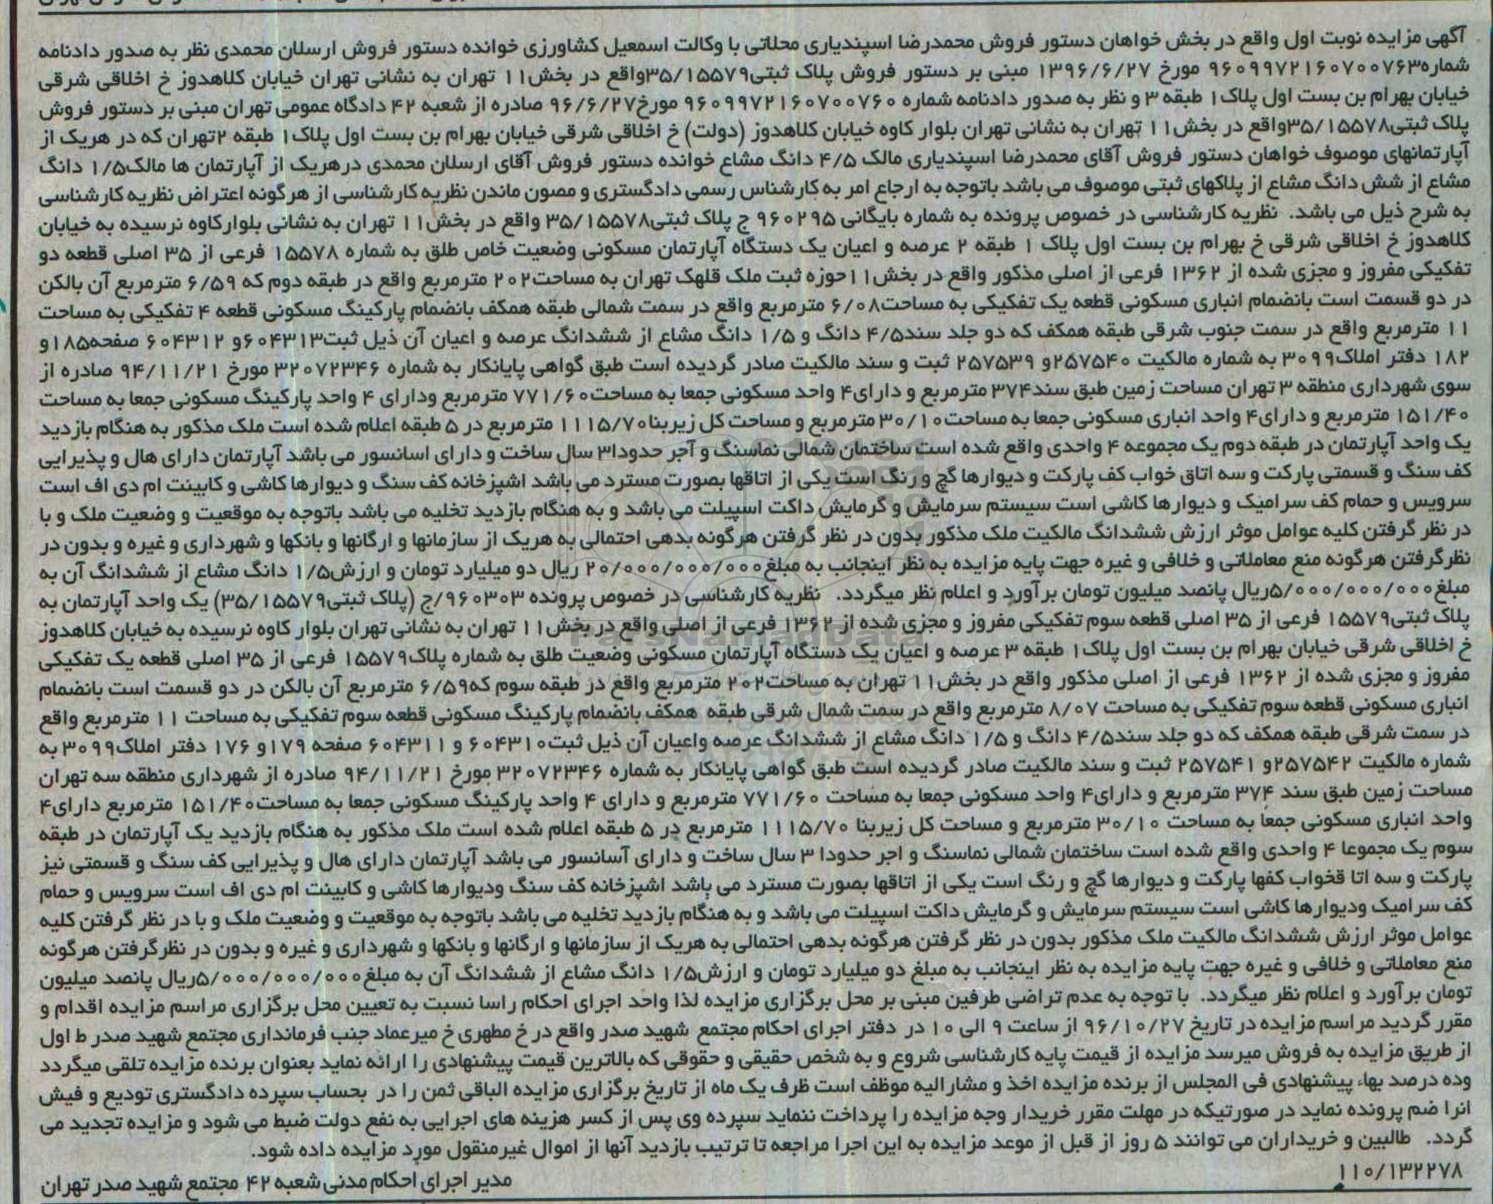 آگهی مزایده نوبت اول واقع در بخش خواهان دستور فروش محمدرضا اسپندیاری محلاتی با وکالت اسمعیل کشاورزی خوانده دستور فروش ارسلان محمدی نظر به صدور دادنامه
شماره۹۶۰۹۹۷۲۱۶۰۷۰۰۷۶۳ مورخ ۱۳۹۶/۶/۲۷ مبنی بر دستور فروش پلاک ثبتی۳۵/۱۵۵۷۹واقع در بخش۱۱ تهران به نشانی تهران خیابان کلاهدوز خ اخلاقی شرقی
خیابان بهرام بن بست اول پلاک۱ طبقه ۳ و نظر به صدور دادنامه شماره ۹۶۰۹۹۷۲۱۶۰۷۰۰۷۶۰ مورخ۹۶/۶/۲۷ صادره از شعبه ۴۲ دادگاه عمومی تهران مبنی بر دستور فروش
پلاک ثبتی۳۵/۱۵۵۷۸واقع در بخش۱۱ تهران به نشانی تهران بلوار کاوه خیابان کلاهدوز (دولت) خ اخلاقی شرقی خیابان بهرام بن بست اول پلاک۱ طبقه ۲تهران که در هریک از
آپارتمانهای موصوف خواهان دستور فروش آقای محمدرضا اسپندیاری مالک ۴/۵ دانگ مشاع خوانده دستور فروش آقای ارسلان محمدی درهریک از آپارتمان ها مالک۱/۵ دانگ
مشاع از شش دانگ مشاع از پلاکهای ثبتی موصوف می باشد باتوجه به ارجاع امر به کارشناس رسمی دادگستری و مصون ماندن نظریه کارشناسی از هرگونه اعتراض نظریه کارشناسی
به شرح ذیل می باشد. نظریه کارشناسی در خصوص پرونده به شماره بایگانی ۹۶۰۲۹۵ ج پلاک ثبتی۳۵/۱۵۵۷۸ واقع در بخش۱۱ تهران به نشانی بلوارکاوه نرسیده به خیابان
کلاهدوز خ اخلاقی شرقی خ بهرام بن بست اول پلاک ۱ طبقه ۲ عرصه و اعیان یک دستگاه آپارتمان مسکونی وضعیت خاص طلق به شماره ۱۵۵۷۸ فرعی از ۳۵ اصلی قطعه دو
تفکیکی مفروز و مجزی شده از ۱۳۶۲ فرعی از اصلی مذکور واقع در بخش۱۱حوزه ثبت ملک قلهک تهران به مساحت۲۰۲ مترمربع واقع در طبقه دوم که ۶/۵۹ مترمربع آن بالکن
در دو قسمت است بانضمام انباری مسکونی قطعه یک تفکیکی به مساحت۶/۰۸ مترمربع واقع در سمت شمالی طبقه همکف بانضمام پارکینگ مسکونی قطعه ۴ تفکیکی به مساحت
۱۱ مترمربع واقع در سمت جنوب شرقی طبقه همکف که دو جلد سند۴/۵ دانگ و ۱/۵ دانگ مشاع از ششدانگ عرصه و اعیان آن ذیل ثبت۶۰۴۳۱۳و ۶۰۴۳۱۲ صفحه۱۸۵و
۱۸۲ دفتر املاک۳۰۹۹ به شماره مالکیت ۲۵۷۵۴۰و ۲۵۷۵۳۹ ثبت و سند مالکیت صادر گردیده است طبق گواهی پایانکار به شماره ۳۲۰۷۲۳۴۶ مورخ ۹۴/۱۱/۲۱ صادره از
سوی شهرداری منطقه ۳ تهران مساحت زمین طبق سند۳۷۴ مترمربع و دارای۴ واحد مسکونی جمعا به مساحت۷۷۱/۶۰ مترمربع ودارای ۴ واحد پارکینگ مسکونی جمعا به مساحت
۱۵۱/۴۰ مترمربع و دارای۴ واحد انباری مسکونی جمعا به مساحت۳۰/۱۰ مترمربع و مساحت کل زیربنا۱۱۱۵/۷۰ مترمربع در ۵ طبقه اعلام شده است ملک مذکور به هنگام بازدید
یک واحد آپارتمان در طبقه دوم یک مجموعه ۴ واحدی واقع شده است ساختمان شمالی نماسنگ و آجر حدودا۳ سال ساخت و دارای اسانسور می باشد آپارتمان دارای هال و پذیرایی
کف سنگ و قسمتی پارکت و سه اتاق خواب کف پارکت و دیوارها گچ و رنگ است یکی از اتاقها بصورت مسترد می باشد اشپزخانه کف سنگ و دیوارها کاشی و کابینت ام دی اف است
سرویس و حمام کف سرامیک و دیوارها کاشی است سیستم سرمایش و گرمایش داکت اسپیلت می باشد و به هنگام بازدید تخلیه می باشد باتوجه به موقعیت و وضعیت ملک و با
در نظر گرفتن کلیه عوامل موثر ارزش ششدانگ مالکیت ملک مذکور بدون در نظر گرفتن هرگونه بدهی احتمالی به هریک از سازمانها و ارگانها و بانکها و شهرداری و غیره و بدون در
نظرگرفتن هرگونه منع معاملاتی و خلافی و غیره جهت پایه مزایده به نظر اینجانب به مبلغ۲۰/۰۰۰/۰۰۰/۰۰۰ ریال دو میلیارد تومان و ارزش۱/۵ دانگ مشاع از ششدانگ آن به
مبلغ۵/۰۰۰/۰۰۰/۰۰۰ریال پانصد میلیون تومان برآورد و اعلام نظر میگردد. نظریه کارشناسی در خصوص پرونده ۹۶۰۳۰۳/ج (پلاک ثبتی۳۵/۱۵۵۷۹) یک واحد آپارتمان به
پلاک ثبتی۱۵۵۷۹ فرعی از ۳۵ اصلی قطعه سوم تفکیکی مفروز و مجزی شده از ۱۳۶۲ فرعی از اصلی واقع در بخش۱۱ تهران به نشانی تهران بلوار کاوه نرسیده به خیابان کلاهدوز
خ اخلاقی شرقی خیابان بهرام بن بست اول پلاک۱ طبقه ۳ عرصه و اعیان یک دستگاه آپارتمان مسکونی وضعیت طلق به شماره پلاک۱۵۵۷۹ فرعی از ۳۵ اصلی قطعه یک تفکیکی
مفروز و مجزی شده از ۱۳۶۲ فرعی از اصلی مذکور واقع در بخش۱۱ تهران به مساحت۲۰۲ مترمربع واقع در طبقه سوم که۶/۵۹ مترمربع آن بالکن در دو قسمت است بانضمام
انباری مسکونی قطعه سوم تفکیکی به مساحت ۸/۰۷ مترمربع واقع در سمت شمال شرقی طبقه همکف بانضمام پارکینگ مسکونی قطعه سوم تفکیکی به مساحت ۱۱ مترمربع واقع
در سمت شرقی طبقه همکف که دو جلد سند۴/۵ دانگ و ۱/۵ دانگ مشاع از ششدانگ عرصه واعیان آن ذیل ثبت۶۰۴۳۱۰ و ۶۰۴۳۱۱ صفحه ۱۷۹و ۱۷۶ دفتر املاک۳۰۹۹ به
شماره مالکیت ۲۵۷۵۴۲و ۲۵۷۵۴۱ ثبت و سند مالکیت صادر گردیده است طبق گواهی پایانکار به شماره ۳۲۰۷۲۳۴۶ مورخ ۹۴/۱۱/۲۱ صادره از شهرداری منطقه سه تهران
مساحت زمین طبق سند ۳۷۴ مترمربع و دارای۴ واحد مسکونی جمعا به مساحت ۷۷۱/۶۰ مترمربع و دارای ۴ واحد پارکینگ مسکونی جمعا به مساحت۱۵۱/۴۰ مترمربع دارای۴
واحد انباری مسکونی جمعا به مساحت ۳۰/۱۰ مترمربع و مساحت کل زیربنا ۱۱۱۵/۷۰ مترمربع در ۵ طبقه اعلام شده است ملک مذکور به هنگام بازدید یک آپارتمان در طبقه
سوم یک مجموعا ۴ واحدی واقع شده است ساختمان شمالی نماسنگ و اجر حدودا ۳ سال ساخت و دارای آسانسور می باشد آپارتمان دارای هال و پذیرایی کف سنگ و قسمتی نیز
پارکت و سه اتا قخواب کفها پارکت و دیوارها گچ و رنگ است یکی از اتاقها بصورت مسترد می باشد اشپزخانه کف سنگ ودیوارها کاشی و کابینت ام دی اف است سرویس و حمام
کف سرامیک ودیوارها کاشی است سیستم سرمایش و گرمایش داکت اسپیلت می باشد و به هنگام بازدید تخلیه می باشد باتوجه به موقعیت و وضعیت ملک و با در نظر گرفتن کلیه
عوامل موثر ارزش ششدانگ مالکیت ملک مذکور بدون در نظر گرفتن هرگونه بدهی احتمالی به هریک از سازمانها و ارگانها و بانکها و شهرداری و غیره و بدون در نظرگرفتن هرگونه
منع معاملاتی و خلافی و غیره جهت پایه مزایده به نظر اینجانب به مبلغ دو میلیارد تومان و ارزش۱/۵ دانگ مشاع از ششدانگ آن به مبلغ۵/۰۰۰/۰۰۰/۰۰۰ریال پانصد میلیون
تومان برآورد و اعلام نظر میگردد. با توجه به عدم تراضی طرفین مبنی بر محل برگزاری مزایده لذا واحد اجرای احکام راسا نسبت به تعیین محل برگزاری مراسم مزایده اقدام و
مقرر گردید مراسم مزایده در تاریخ ۹۶/۱۰/۲۷ از ساعت ۹ الی ۱۰ در دفتر اجرای احکام مجتمع شهید صدر واقع در خ مطهری خ میرعماد جنب فرمانداری مجتمع شهید صدر ط اول
از طریق مزایده به فروش میرسد مزایده از قیمت پایه کارشناسی شروع و به شخص حقیقی و حقوقی که بالاترین قیمت پیشنهادی را ارائه نماید بعنوان برنده مزایده تلقی میگردد
وده درصد بهاء پیشنهادی فی المجلس از برنده مزایده اخذ و مشارالیه موظف است ظرف یک ماه از تاریخ برگزاری مزایده الباقی ثمن را در بحساب سپرده دادگستری تودیع و فیش
انرا ضم پرونده نماید در صورتیکه در مهلت مقرر خریدار وجه مزایده را پرداخت ننماید سپرده وی پس از کسر هزینه های اجرایی به نفع دولت ضبط می شود و مزایده تجدید می
گردد. طالبین و خریداران می توانند ۵ روز از قبل از موعد مزایده به این اجرا مراجعه تا ترتیب بازدید آنها از اموال غیرمنقول مورد مزایده داده شود.
۱۱۰/۱۳۲۲۷۸
مدیر اجرای احکام مدنی شعبه ۴۲ مجتمع شهید صدر تهران
ParsNamadData